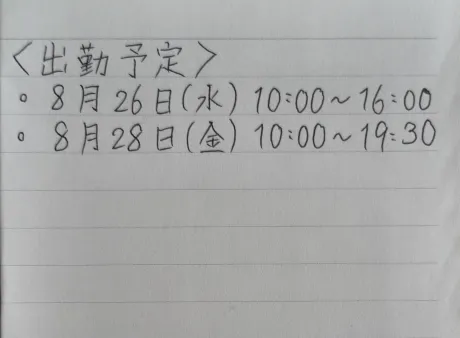 〈出勤予定〉
◦ 8月26日(水) 10:00~16:00
◦ 8月28日(金) 10:00~19:30